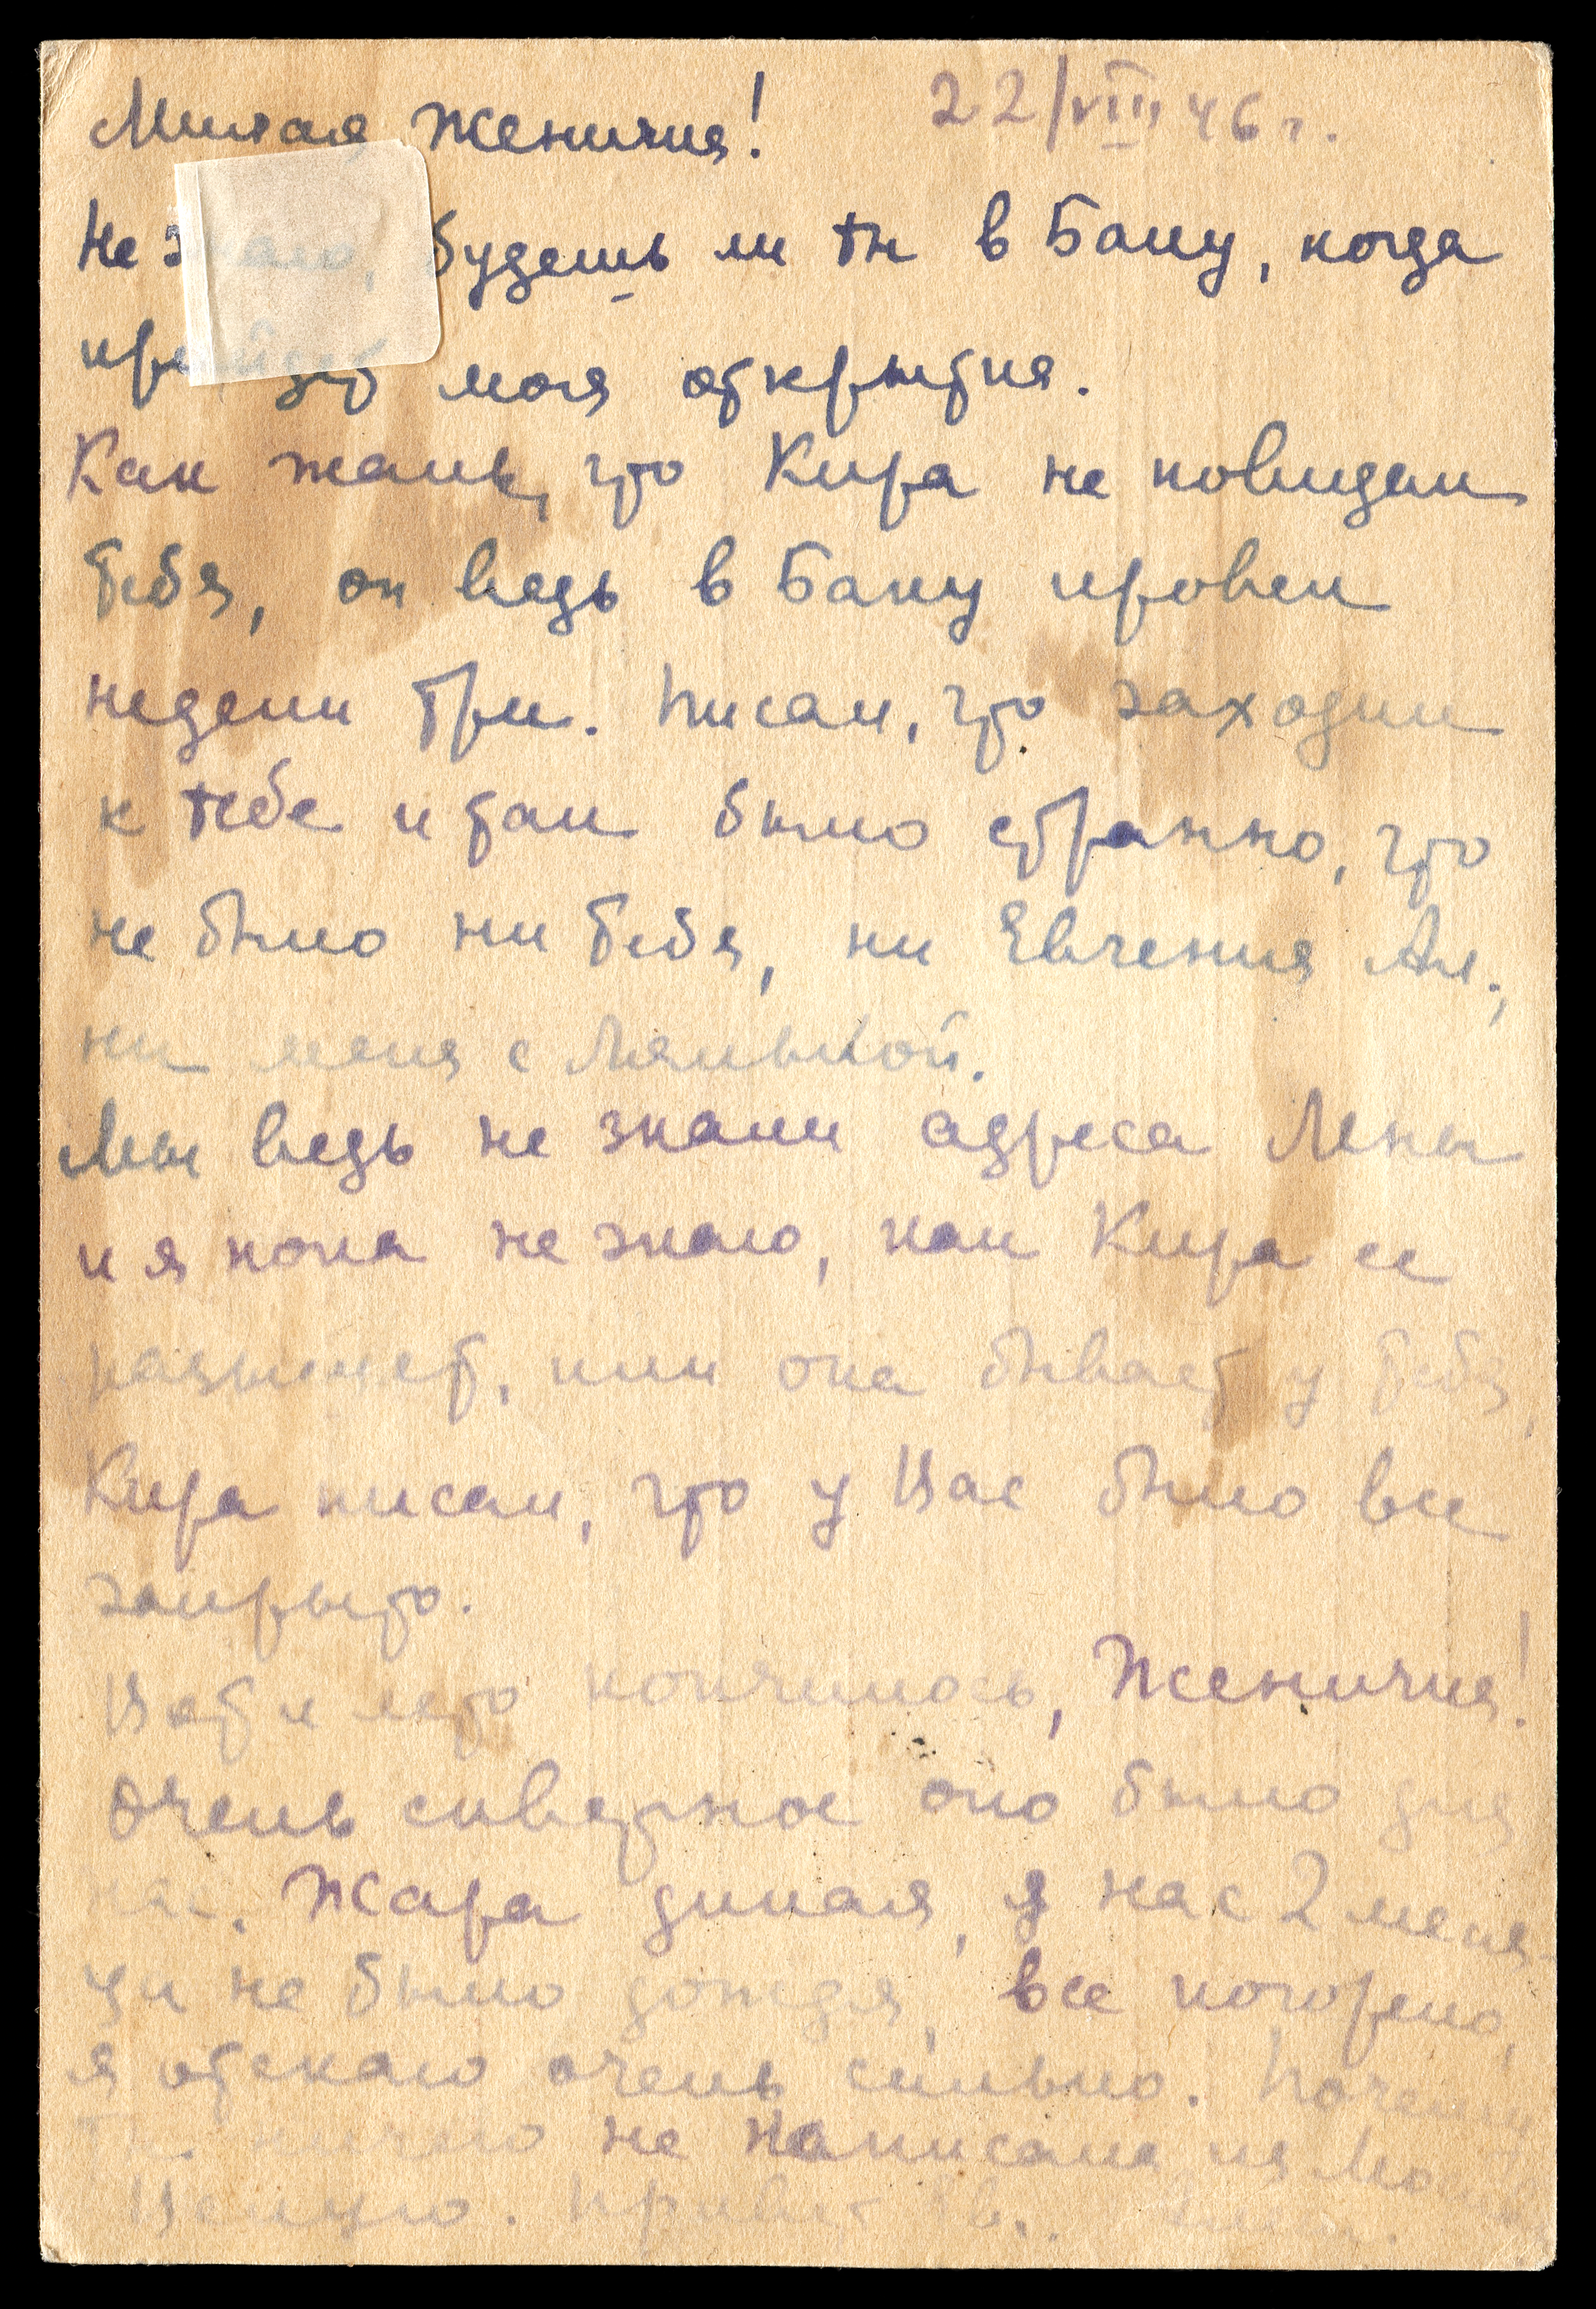 Милая Женичка! 22/VIII 46 г.
Не знаю, будешь ли ты в Баку, когда
прийдет моя открытка.
Как жаль, что Кира не повидал
тебя, он ведь в Баку провел
недели три. Писал, что заходил
к тебе и там было странно, что
не было ни тебя, ни Евгения Ал.,
ни меня с Лялькой.
Мы ведь не знали адреса Лены
и я пока не знаю, как Кира ее
разыщет, или она бывает у тебя,
Кира писал, что у Вас было все
закрыто.
Вот и лето кончилось, Женичка!
Очень скверное оно было для
нас. Жара дикая, у нас 2 меся-
ца не было дождя, все погорело,
я отекаю очень сильно. Почему
ты ничего не написала из
Целую. Привет